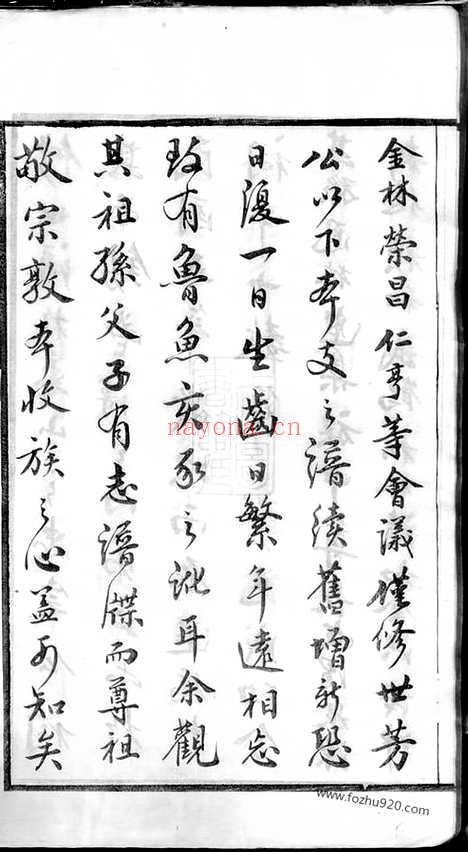 金林榮昌仁亨等會議僅修世芳
公以下本支之譜續舊增新恐
日復一日生齒日繁年遠相忘
致有魯魚亥豕之訛耳余觀
其祖孫父子有志譜牒而尊祖
敬宗敦本收族之心盖可知矣
nayona.cn
www.fozhu920.com